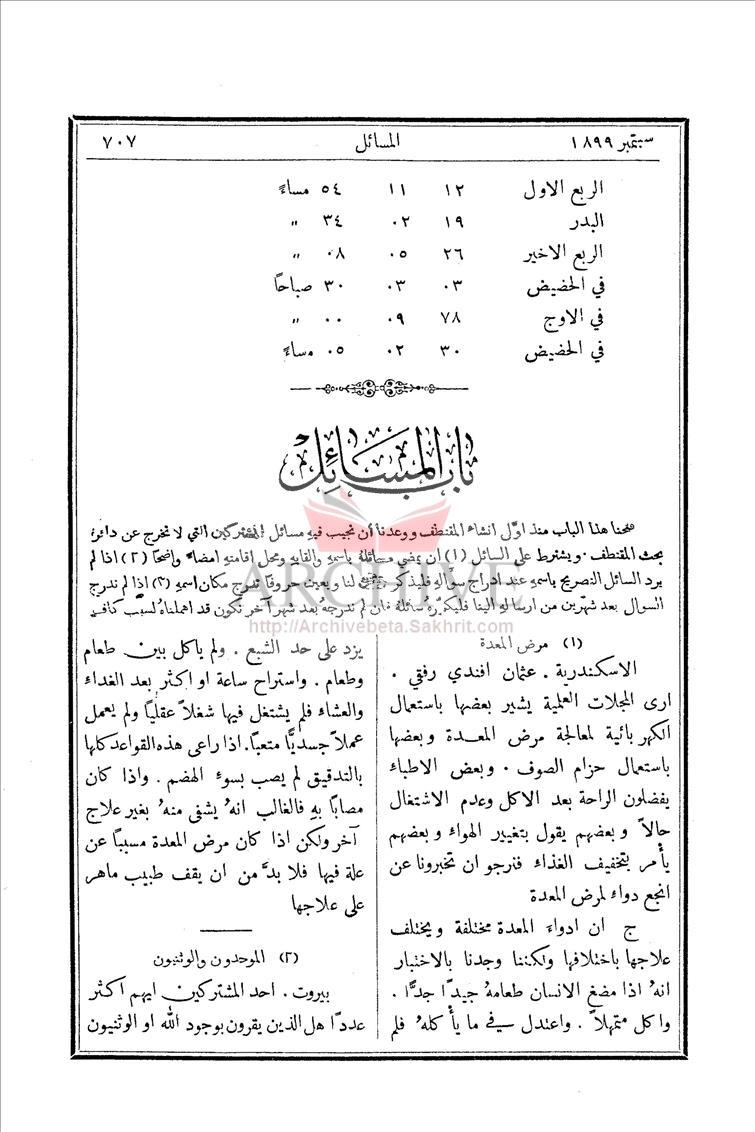 سبتمبر ١٨٩٩ المسائل ٧٠٧
الربع الاول ١٢ ١١ ٥٤ مساءً
البدر ١٩ ٠٢ ٣٤ "
الربع الاخير ٢٦ ٠٥ ٠٨ "
في الحضيض ٠٣ ٠٣ ٣٠ صباحًا
في الاوج ٧٨ ٠٩ ٠٠ "
في الحضيض ٣٠ ٠٢ ٠٥ مساءً
باب المسائل
فتحنا هذا الباب منذ اوّل انشاء المقتطف ووعدنا أن نجيب فيهِ مسائل المشتركين التي لا تخرج عن دائرة
بحث المقتطف. ويشترط على السائل (١) ان يمضي مسائلهُ باسمهِ والقابهِ ومحل اقامتهِ امضاءً واضحًا (٢) اذا لم
يرد السائل التصريح باسمهِ عند ادراج سؤالهِ فليذكر لنا ويعين حروفًا تدرج مكان اسمهِ (٣) اذا لم ندرج
السوال بعد شهرين من ارسالهِ الينا فليكررهُ سائلهُ فان لم ندرجهُ بعد شهر آخر نكون قد اهملناهُ لسبب كافٍ
ARCHIVE
http://Archivebeta.Sakhrit.com
(١) مرض المعدة
الاسكندرية . عثمان افندي رفقي .
ارى المجلات العلمية يشير بعضها باستعمال
الكهربائية لمعالجة مرض المعدة وبعضها
باستعمال حزام الصوف . وبعض الاطباء
يفضلون الراحة بعد الاكل وعدم الاشتغال
حالاً وبعضهم يقول بتغيير الهواء وبعضهم
يأمر بتخفيف الغذاء فنرجو ان تخبرونا عن
انجع دواء لمرض المعدة
ج ان ادواء المعدة مختلفة ويختلف
علاجها باختلافها ولكننا وجدنا بالاختبار
انهُ اذا مضغ الانسان طعامهُ جيدًا جدًّا .
واكل متمهلاً . واعتدل في ما يأكلهُ فلم
يزد على حد الشبع . ولم ياكل بين طعام
وطعام . واستراح ساعة او اكثر بعد الغداء
والعشاء فلم يشتغل فيها شغلاً عقليًّا ولم يعمل
عملاً جسديًّا متعبًا. اذا راعى هذه القواعد كلها
بالتدقيق لم يصب بسوء الهضم . واذا كان
مصابًا بهِ فالغالب انهُ يشفى منهُ بغير علاج
آخر ولكن اذا كان مرض المعدة مسببًا عن
علة فيها فلا بدَّ من ان يقف طبيب ماهر
على علاجها
(٢) الموحدون والوثنيون
بيروت . احد المشتركين ايهم اكثر
عددًا هل الذين يقرون بوجود الله او الوثنيون